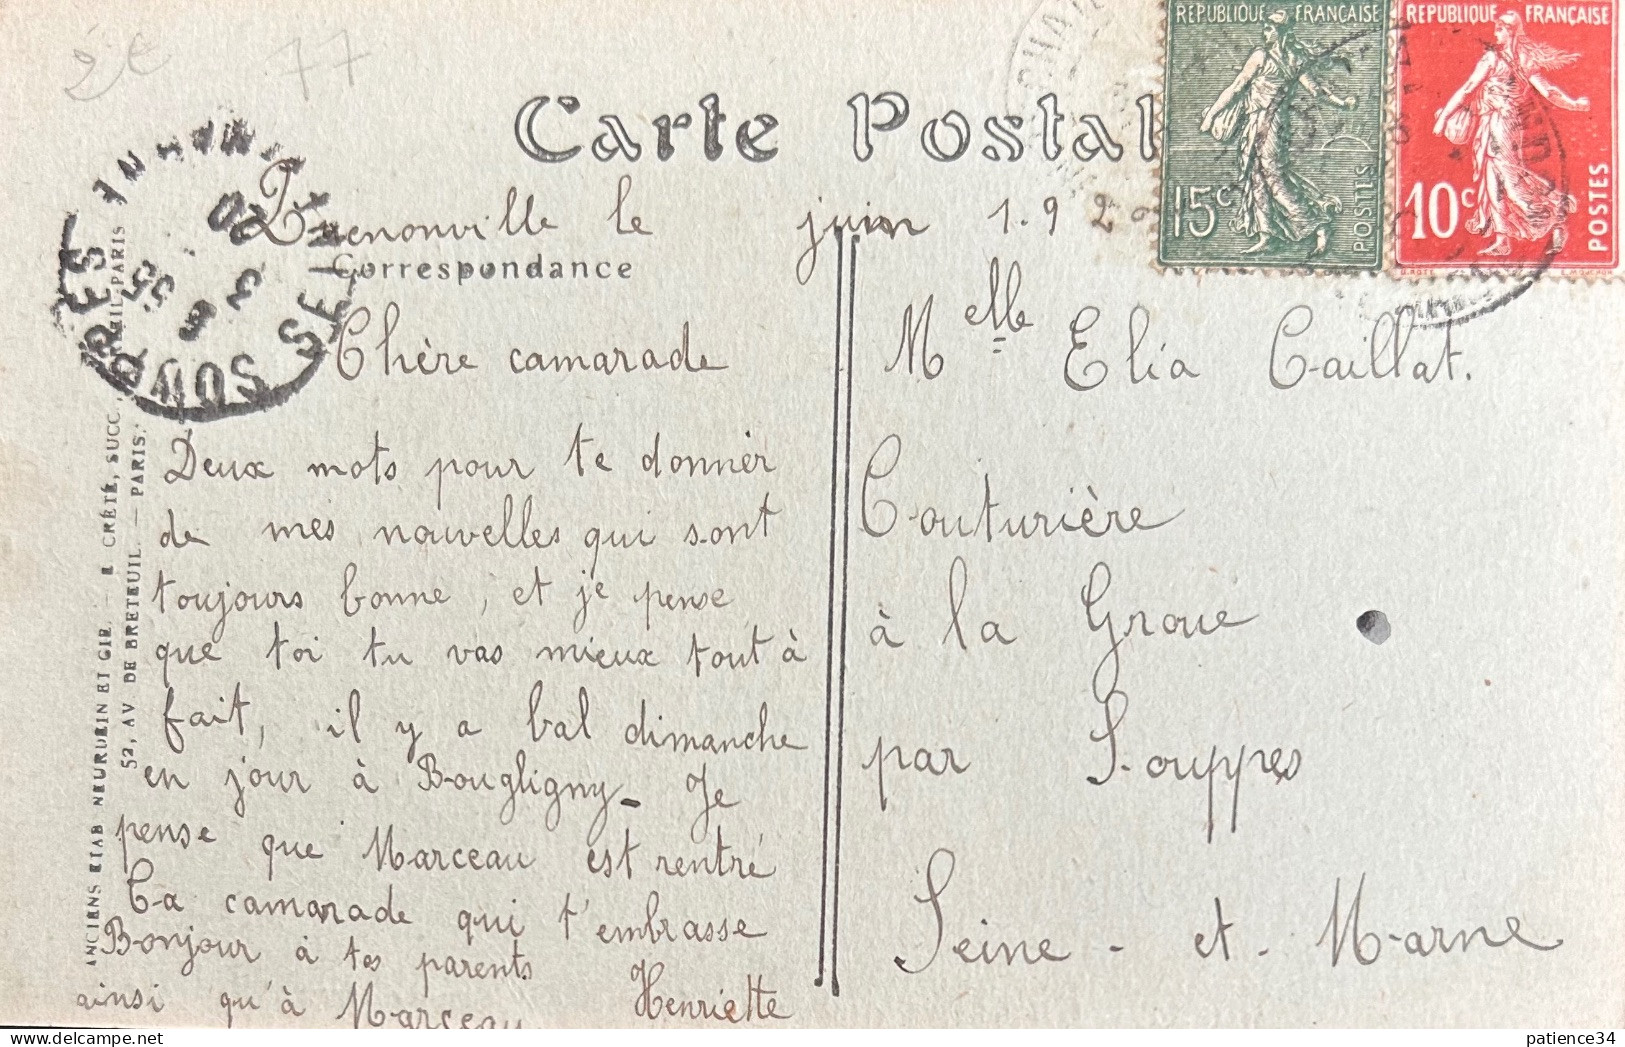 77
Carte Postal
RÉPUBLIQUE FRANÇAISE
15c
POSTES
RÉPUBLIQUE FRANÇAISE
10c
POSTES
SOUPPES
SEINE
le juin 1.92
Correspondance
Chère camarade
Deux mots pour te donner
de mes nouvelles qui sont
toujours bonne, et je pense
que toi tu vas mieux tout à
fait, il y a bal dimanche
en jour à Bougligny_ Je
pense que Marceau est rentré
Ta camarade qui t'embrasse
Bonjour à tes parents Henriette
ainsi qu'à Marceau
Melle Elia Caillat.
Couturière
à la Groue
par Souppes
Seine-et-Marne
ANCIENS ETAB NEURDEIN ET CIE. — E CRÉTÉ, SUCC
52, AV DE BRETEUIL. — PARIS.
patience34